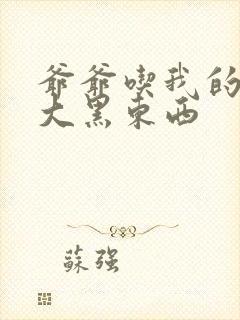 爺爺喫我的
大黑东西
蘇强